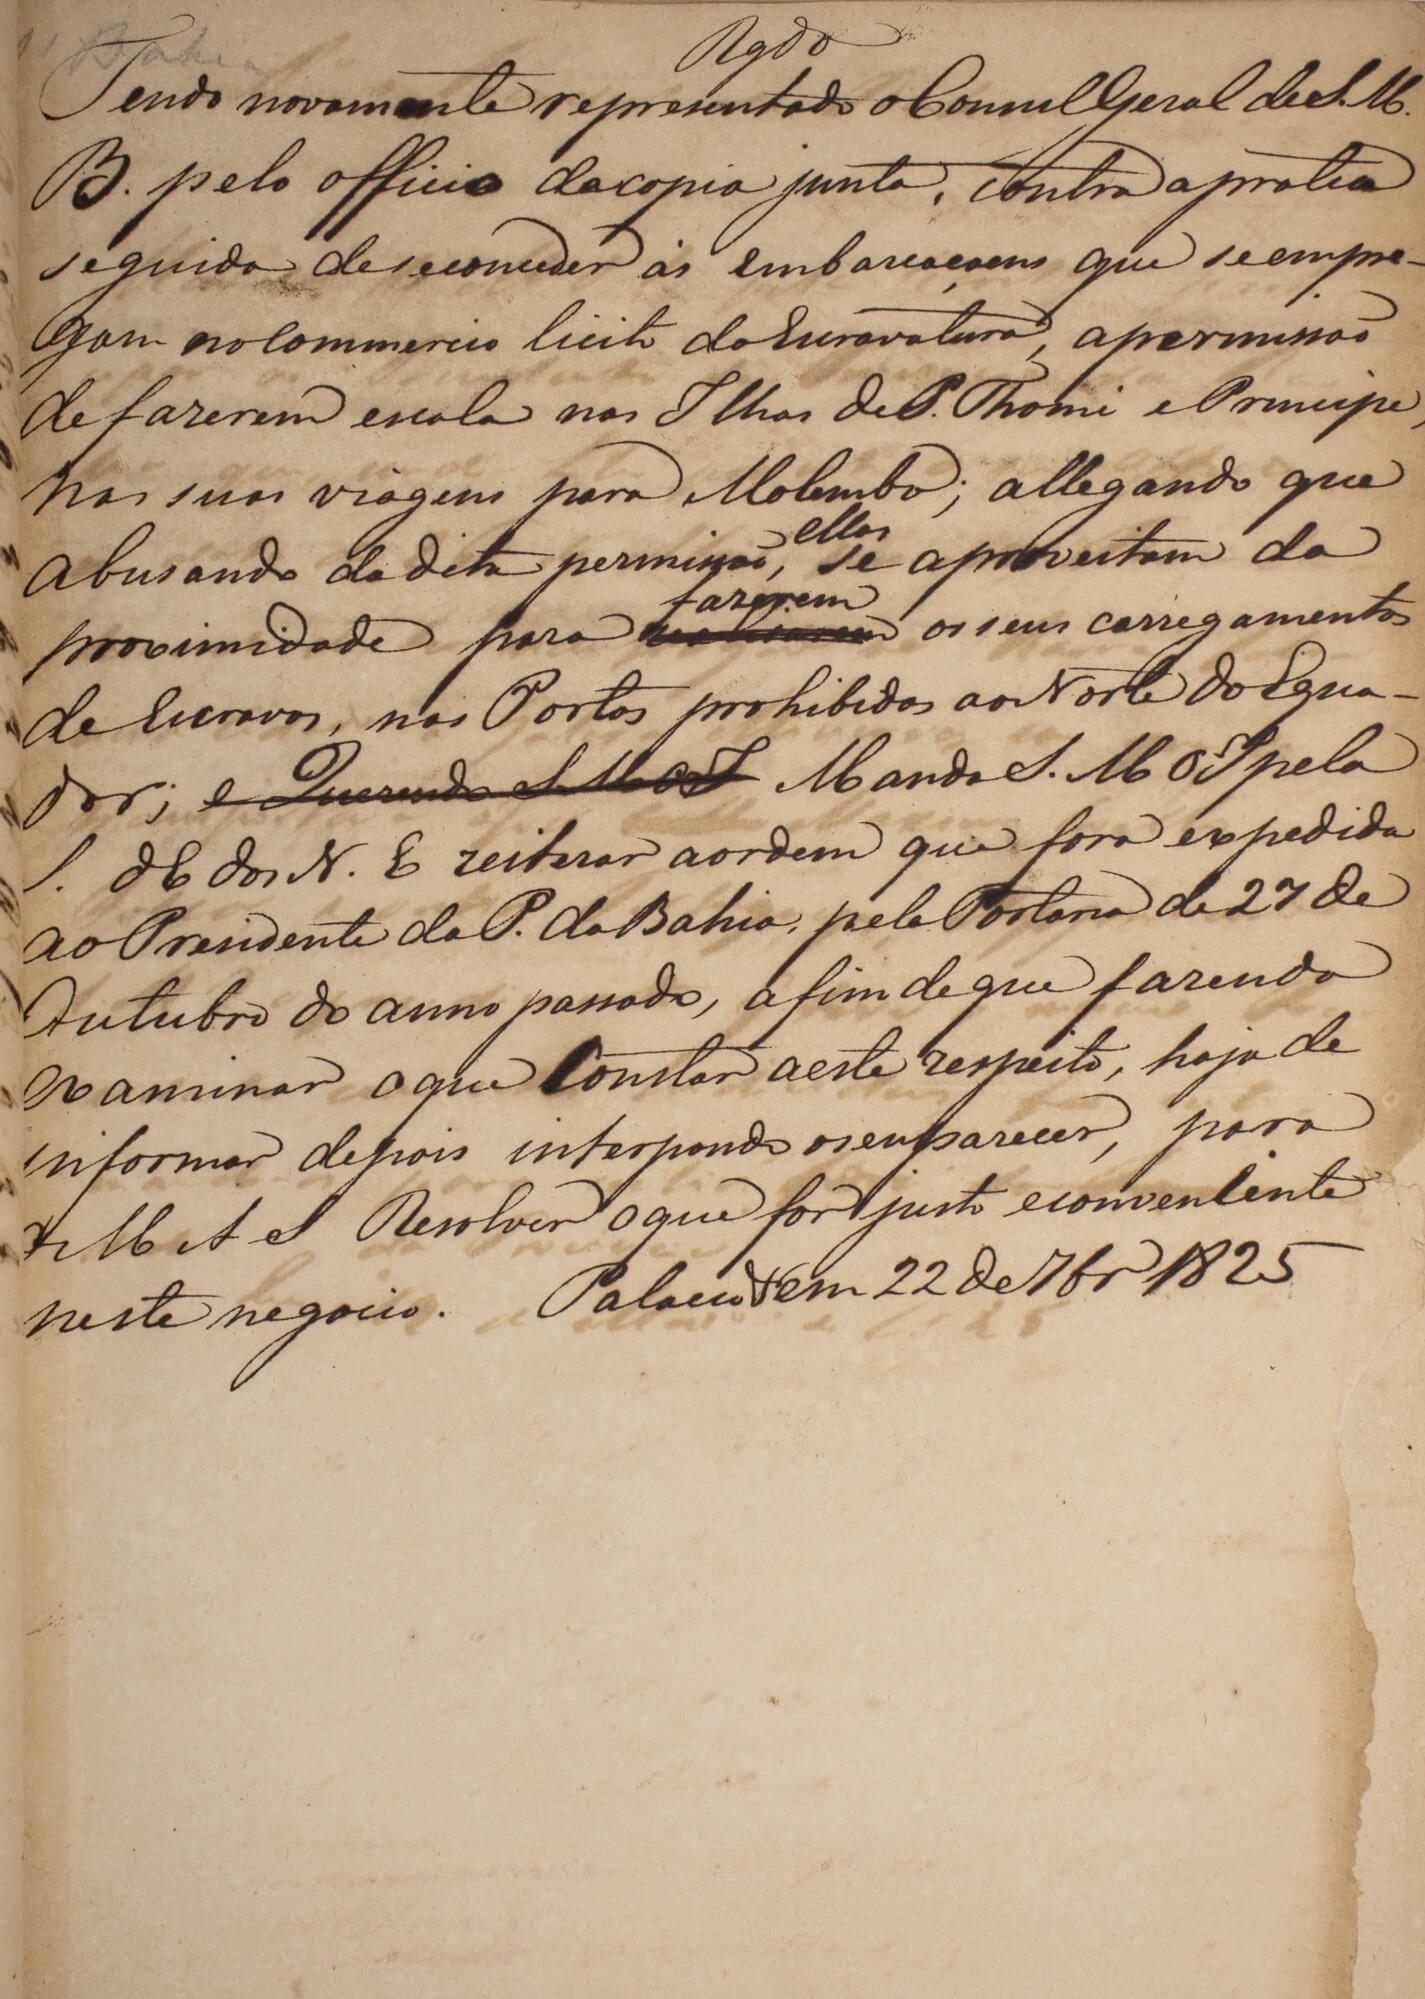 Bahia
Rgdo
Tendo novamente representado o Consul Geral de S. M.
B. pelo officio da copia junta, contra a pratica
seguida de se conceder ás embarcaçoens que se empre-
gam no Commercio licito da Escravatura, a permissaõ
de fazerem escala nas Ilhas de S. Thomé e Principe,
nas suas viagens para Molembo; allegando que
abusando da dita permissaõ, ellas se aproveitam da
proximidade para fazerem os seus carregamentos
de Escravos, nos Portos prohibidos ao Norte do Equa-
dor; e Querendo S. M. O I Manda S. M. O I pela
S. d'E dos N. E reiterar a ordem que fora expedida
ao Presidente da P. da Bahia, pela Portaria de 27 de
Outubro do anno passado, a fim de que fazendo
examinar o que Constar a este respeito, haja de
informar depois interpondo o seu parecer, para
S. M. A I Resolver o que for justo e conveniente
neste negocio. Palacio em 22 de 7br 1825